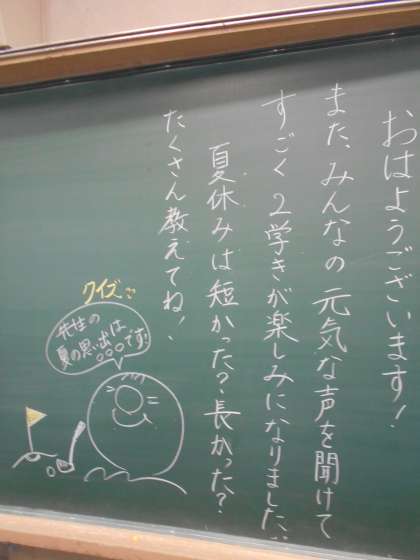 おはようございます!
また、みんなの元気な声を聞けて
すごく2学きが楽しみになりました。
夏休みは短かった?長かった?
たくさん教えてね!
クイズ
先生の
夏の思い出は
○○○です!